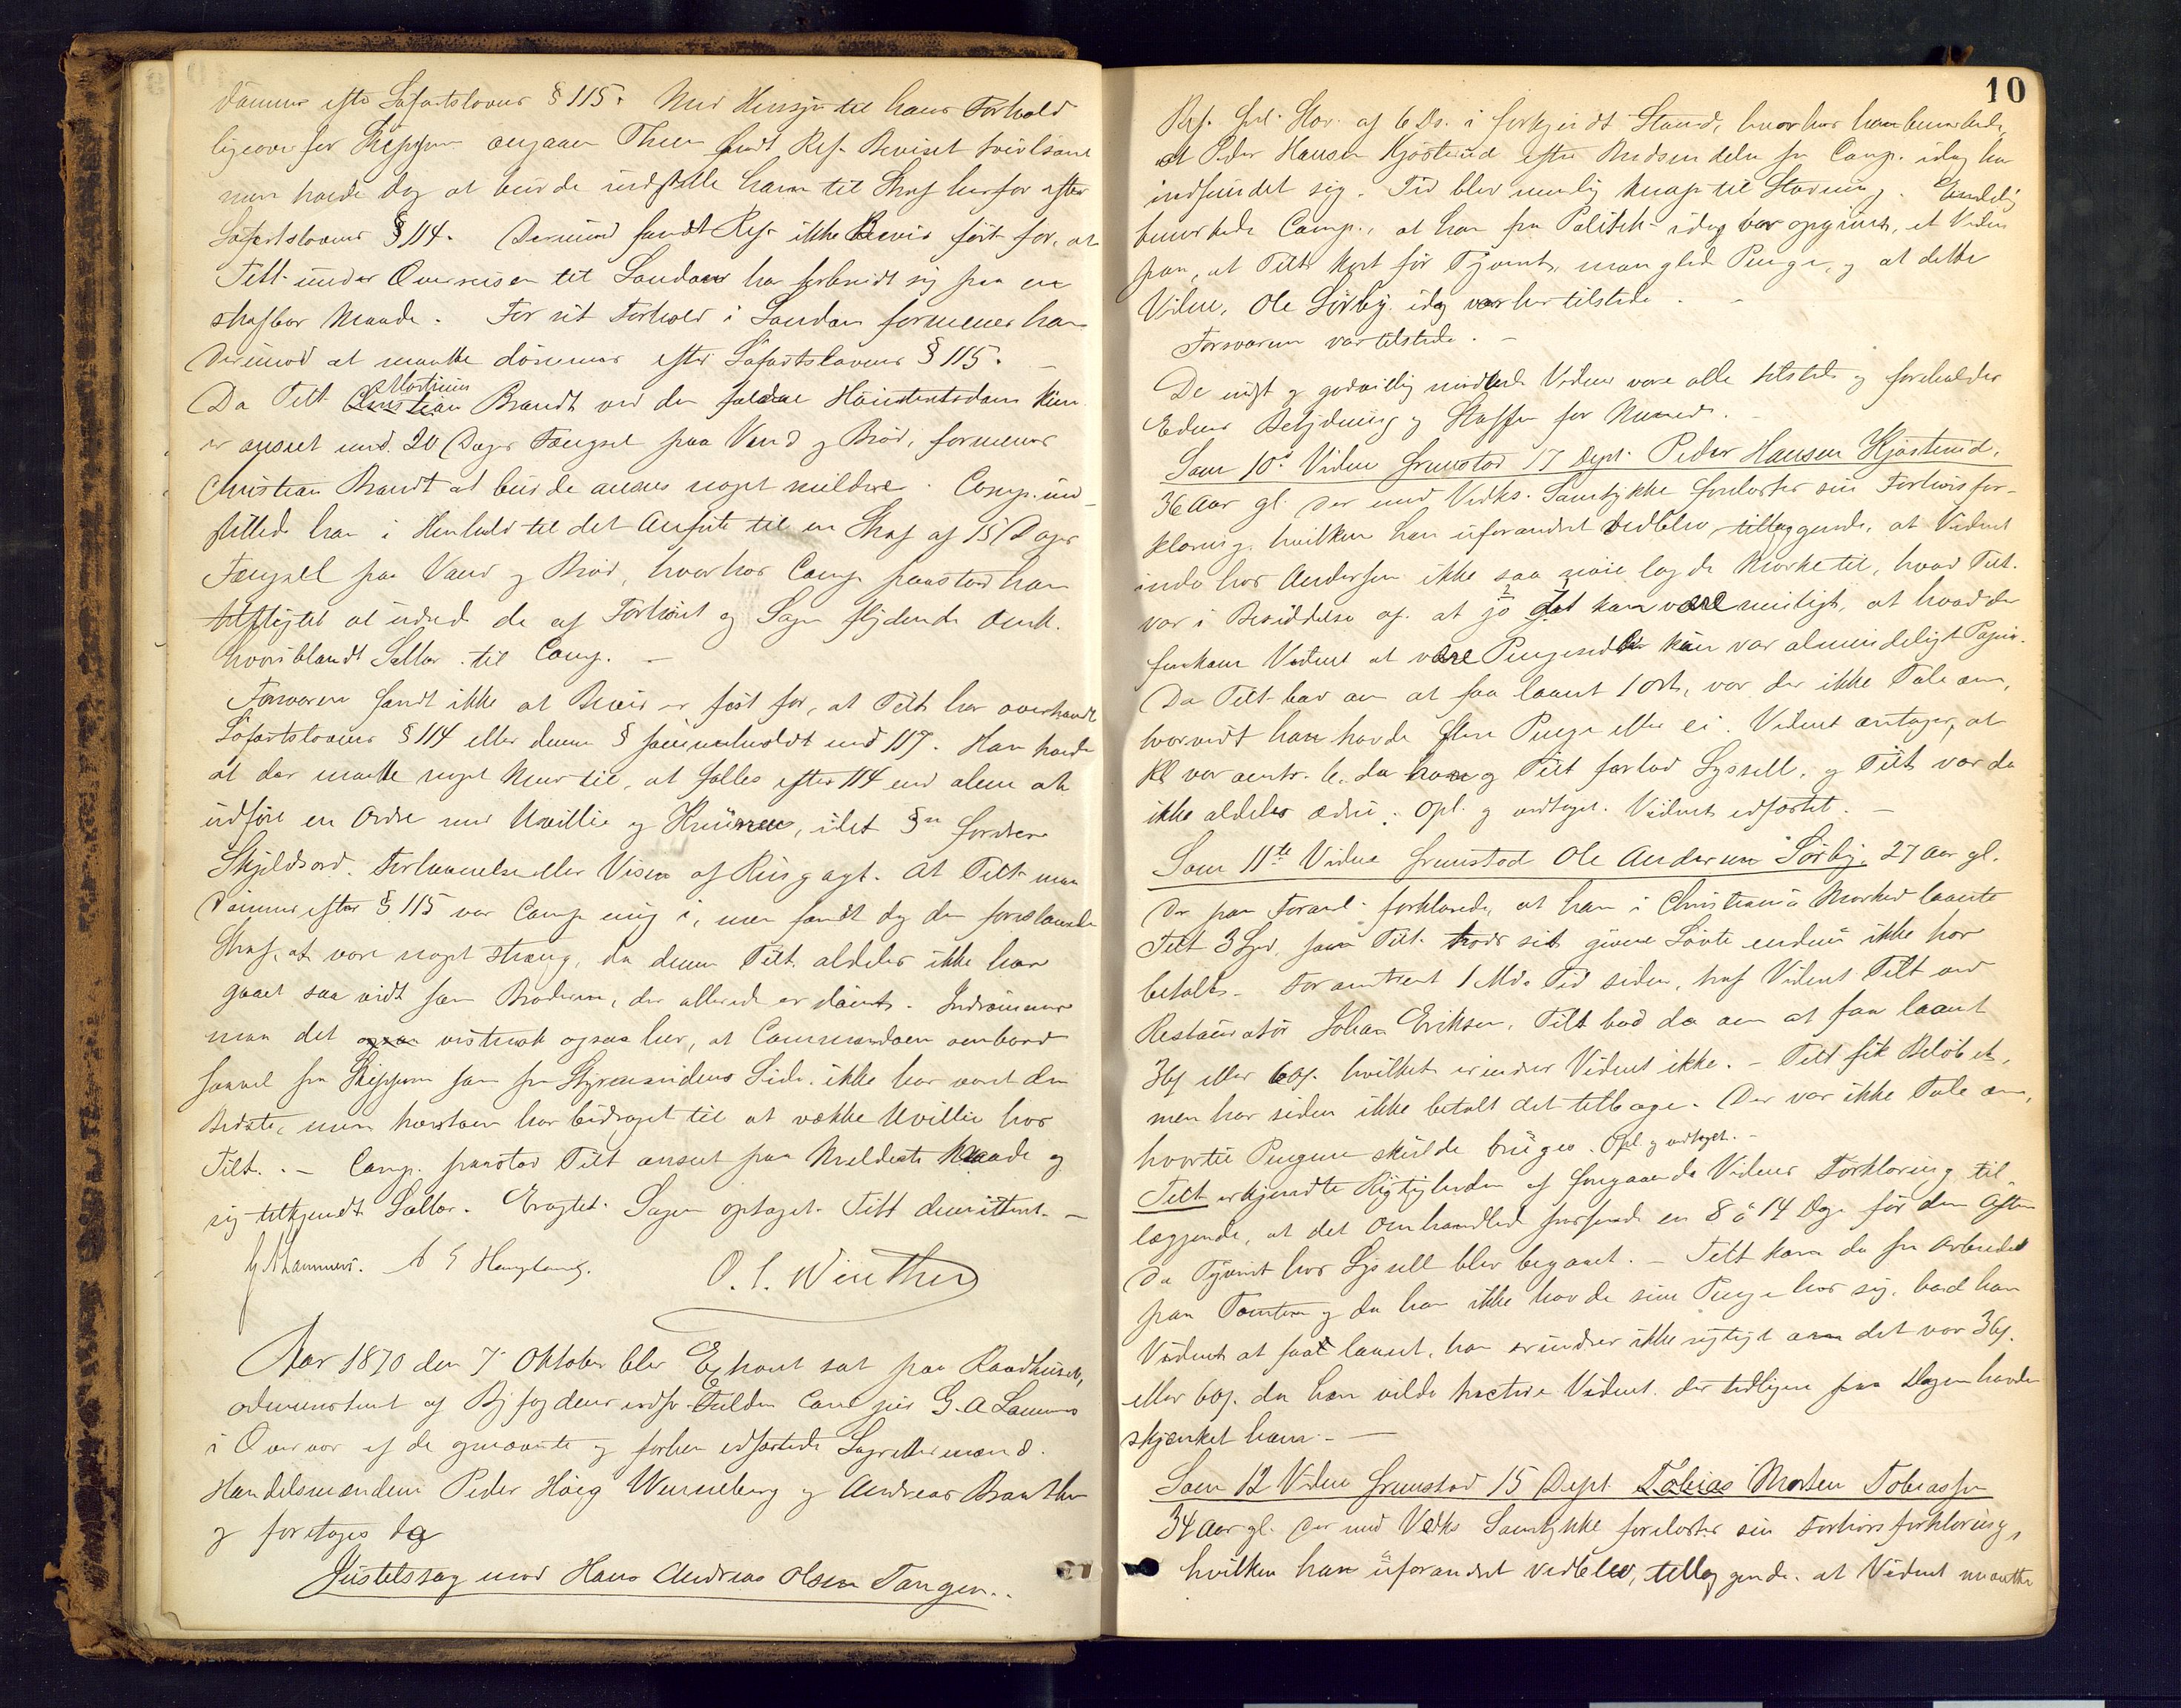 dømmes efter Søfartslovens § 115. Med Hensyn til hans Forhold
ligeoverfor Skipperen angaaende Theen fandt Ref. Beviset tvivlsomt
men troede dog at burde indstille ham til Straf herfor efter
Søfartslovens § 114. Derimod fandt Ref. ikke Bevis ført for, at
Tilt. under Overreisen til London har forbrudt sig paa en
strafbar Maade. For sit Forhold i London formenes han
derimod at maatte dømmes efter Søfartslovens § 115. –
Da Tilt. Martinius Brandt ved den faldne Dom kun
er anseet med 20 Dages Fængsel paa Vand og Brød, formenes
Christian Brandt at burde ansees noget mildere. Comp. ind-
stilled ham i Henhold til det Anførte til en Straf af 15 Dages
Fængsel paa Vand og Brød, hvorhos Comp. paastod ham
tilpligtet at udrede de af Forhøret og Sagen flydende Omk.
hvoriblandt Sallar. til Comp. –
Forsvareren fandt ikke at Bevis er ført for, at Tilt. har overtraadt
Søfartslovens § 114 eller denne § sammenholdt med 117. Han troede
at der maatte noget Mere til, at fældes efter 114 end alene at
udføre en Ordre med Uvillie og Knurren, idet §en fordrer
Skjeldsord, Forhaanelse eller Visen af Ringeagt. At Tilt. maa
dømmes efter § 115 var Comp. enig i, men fandt dog den foreslaaede
Straf at være noget streng, da denne Tilt. aldeles ikke har
gaaet saa vidt som Broderen, der allerede er dømt. Indrømmes
maa det ogsaa vistnok ogsaa her, at Commandoen ombord
saavel fra Skipperen som fra Styrmandens Side ikke har været den
Bedste, men har bidraget til at vække Uvillie hos
Tilt. – Comp. paastod Tilt. anseet paa Mildeste Maade og
sig tilkjendt Sallar. Eragtet. Sagen optaget. Tilt. demitteret. –
G A Lammers. O. S. Winther
Aar 1870 den 7. Oktober blev Extraret sat paa Raadhuset,
administreret af Byfogdens edsv. Fuldm. Cand. jur. G. A Lammers
i Overvær af de opnævnte og forhen edfæstede Lagrettesmænd.
Handelsmændene Peder Høeg Wenneberg og Andreas Braathen
og foretoges da
Justitssag mod Hans Andreas Olsen Tangen.
10
Ref. frl. Stev. af 6 ds. i forkyndt Stand, hvorhos han bemærkede,
at Peder Hansen Kjøsterud efter Budsendelse fra Comp. idag har
indfundet sig. Tid blev nemlig knap til Stevning. Endelig
bemærkede Comp., at han fra Politiet idag var opgivet, et Vidne
paa, at Tilt. kort før Tyveriet, manglede Penge, og at dette
Vidne, Ole Sørby, idag var her tilstede. –
Forsvareren var tilstede. –
De indst. og godvillig mødende Vidner vare alle tilstede og foreholdtes
Edens Betydning og Straffen for Meened.
Som 10de Vidne fremstod 17 Dept. Peder Hansen Kjøsterud,
36 Aar gl. der med Vedks. Samtykke forelæstes sin Forhørsfor-
klaring, hvilken han uforandret vedblev, tillæggende, at Vidnet
inde hos Andersen ikke saa nøie lagde Mærke til, hvad Tilt.
var i Besiddelse af. at jo det kan være muligt, at hvad der
forekom Vidnet at være Pengesedler kun var almindeligt Papir.
Da Tilt. bad om at faa laant 1 ort, var der ikke Tale om,
hvorvidt han havde flere Penge eller ei. Vidnet antager, at
Kl var omtr. 6, da han og Tilt. forlod Lysell, og Tilt. var da
ikke aldeles ædru. Opl. og vedtaget. Vidnet edfæstet. –
Som 11te Vidne fremstod Ole Andersen Sørby, 27 Aar gl.
Der paa Foranl. forklarede, at han i Christiania Marked laante
Tilt. 3 Spd, som Tilt. trods sit givne Løvte endnu ikke har
betalt. For omtrent 1 Mds. Tid siden, traf Vidnet Tilt. ved
Restauratør Johan Eriksen, Tilt. bad da om at faa laant
3 eller 6 , hvilket erindrer Vidnet ikke. – Tilt. fik Beløbet,
men har siden ikke betalt det tilbage. Der var ikke Tale om,
hvortil Pengene skulde bruges. Opl. og vedtaget. –
Tilt. erkjendte Rigtigheden af foregaaende Vidnes Forklaring til-
læggende, at det Omhandlede passerede en 8 à 14 Dage før den Aften
da Tyveriet hos Lysell blev begaaet. – Tilt. kom da fra Arbeidet
paa Tomten og da han ikke havde sine Penge hos sig, bad han
Vidnet at faa laant, han erindrer ikke rigtigt om det var 3
eller 6 , da han vilde tractere Vidnet, der tidligere paa Dagen havde
skjænket ham. –
Som 12 Vidne fremstod 15 Dept. Tobias Morten Tobiassen
34 Aar gl. der med Vedks Samtykke forelæstes sin Forhørsforklaring,
hvilken han uforandret vedblev, tillæggende, at Vidnet maatte